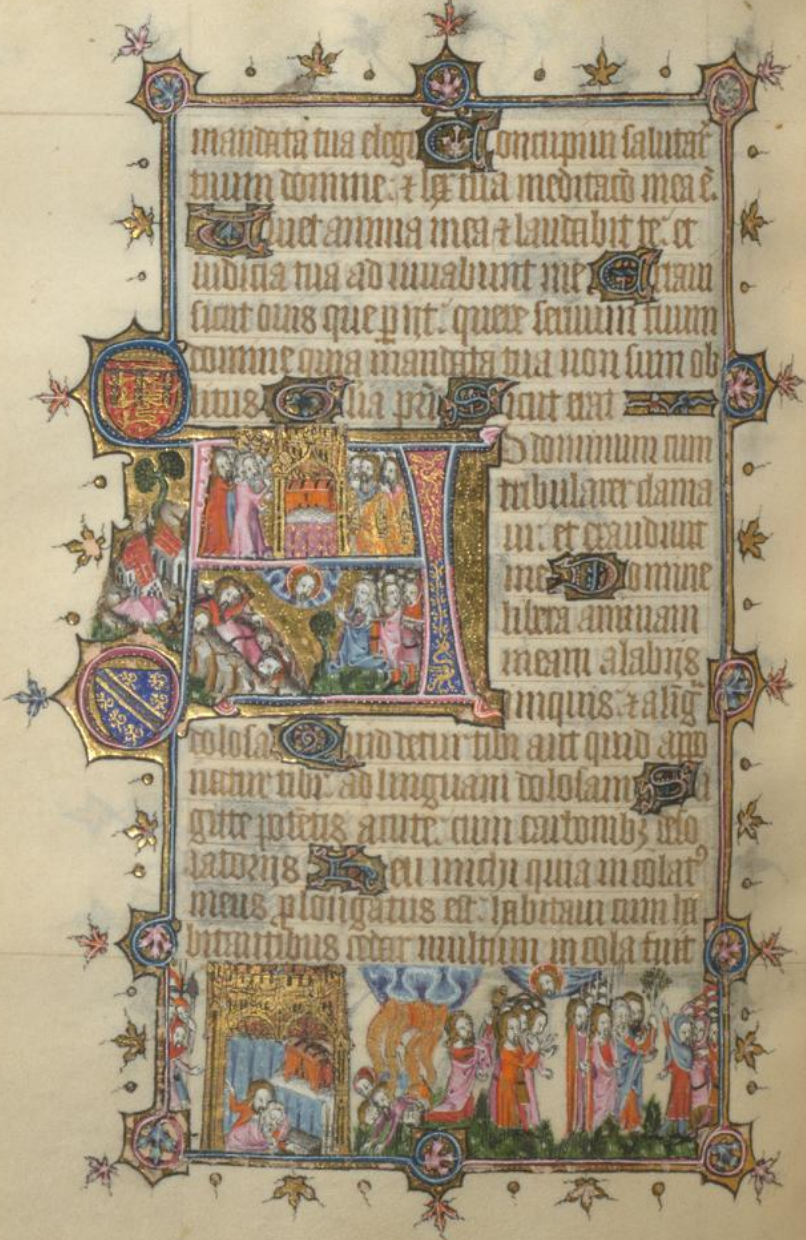 mandata tua elegi Concupiui salutar̄
tuum domine: ⁊ lex tua meditac̄o mea ē.
Uiuet anima mea ⁊ laudabit te: et
iudicia tua ad iuuabunt me Erraui
sicut ouis que p̲iit: quere seruum tuum
domine quia mandata tua non sum ob
litus Glīa pr̄i Sicut erat
AD dominum cum
tribularer clama
ui: et exaudiuit
me Domine
libera animam
meam a labijs
iniquis: ⁊ a ling̅
dolosa Quid detur tibi aut quid apo
natur tibi: ad linguam dolosam Sa
gitte potētis acute: cum carbonibꝫ deso
latorijs Heu michi quia incolatꝰ
meus ꝓlongatus est: habitaui cum ha
bitantibus cedar multum incola fuit